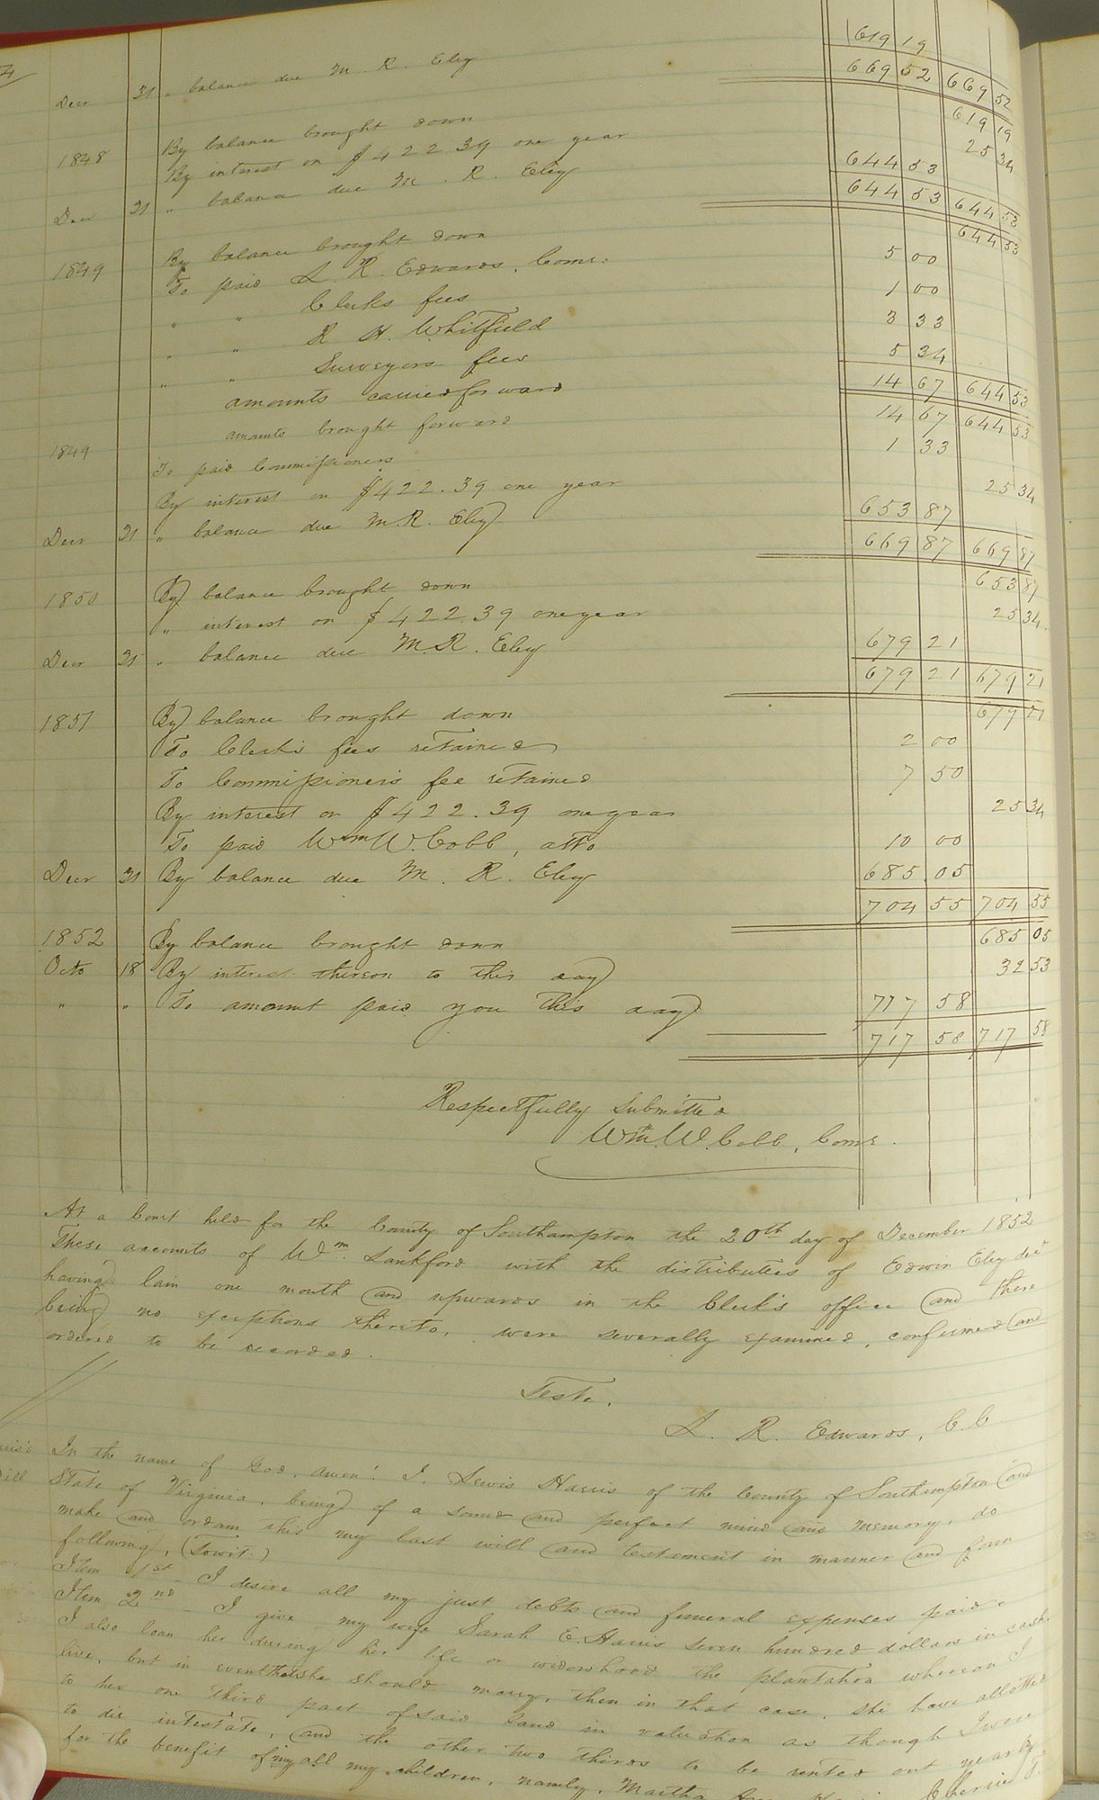 619 19
Decr 31 " balance due M. R. Eley 669 52 669 52
1848 By balance brought down 619 19
By interest on $422.39 one year 25 34
Decr 31 " balance due M. R. Eley 644 53
644 53 644 53
1849 By balance brought down 644 53
To paid L. R. Edwards, Comr. 5 00
" " Clerks fees 1 00
" " R. H. Whitfield 3 33
" " Surveyors fees 5 34
amounts carried forward 14 67 644 53
1849 amounts brought forward 14 67 644 53
To paid Commissioners 1 33
By interest on $422.39 one year 25 34
Decr 31 " balance due M. R. Eley 653 87
669 87 669 87
1850 By balance brought down 653 87
" interest on $422.39 one year 25 34
Decr 31 " balance due M. R. Eley 679 21
679 21 679 21
1851 By balance brought down 679 21
To Clerk's fees retained 2 00
To Commissioner's fee retained 7 50
By interest on $422.39 one year 25 34
To paid Wm W. Cobb, atto 10 00
Decr 31 By balance due M. R. Eley 685 05
704 55 704 55
1852 By balance brought down 685 05
Octo 18 By interest thereon to this day 32 53
" " To amount paid you this day 717 58
717 58 717 58
Respectfully submitted
Wm. W. Cobb, Comr.
At a Court held for the County of Southampton the 20th day of December 1852
These accounts of Wm. Lankford with the distributees of Edwin Eley decd
having lain one month and upwards in the Clerk's office and there
being no exceptions thereto, were severally examined, confirmed and
ordered to be recorded.
Teste,
L. R. Edwards, C. C.
In the name of God, amen! I, Lewis Harris of the County of Southampton and
State of Virginia, being of a sound and perfect mind and memory, do
make and ordain this my last will and testament in manner and form
following, (Towit.)
Item 1st - I desire all my just debts and funeral expenses paid.
Item 2nd - I give my wife Sarah E. Harris seven hundred dollars in cash.
I also loan her during her life or widowhood the plantation whereon I
live, but in event that she should marry, then in that case, she have allotted
to her one third part of said land in valuation as though I were
to die intestate, and the other two thirds to be rented out yearly
for the benefit of my all my children, namely, Martha